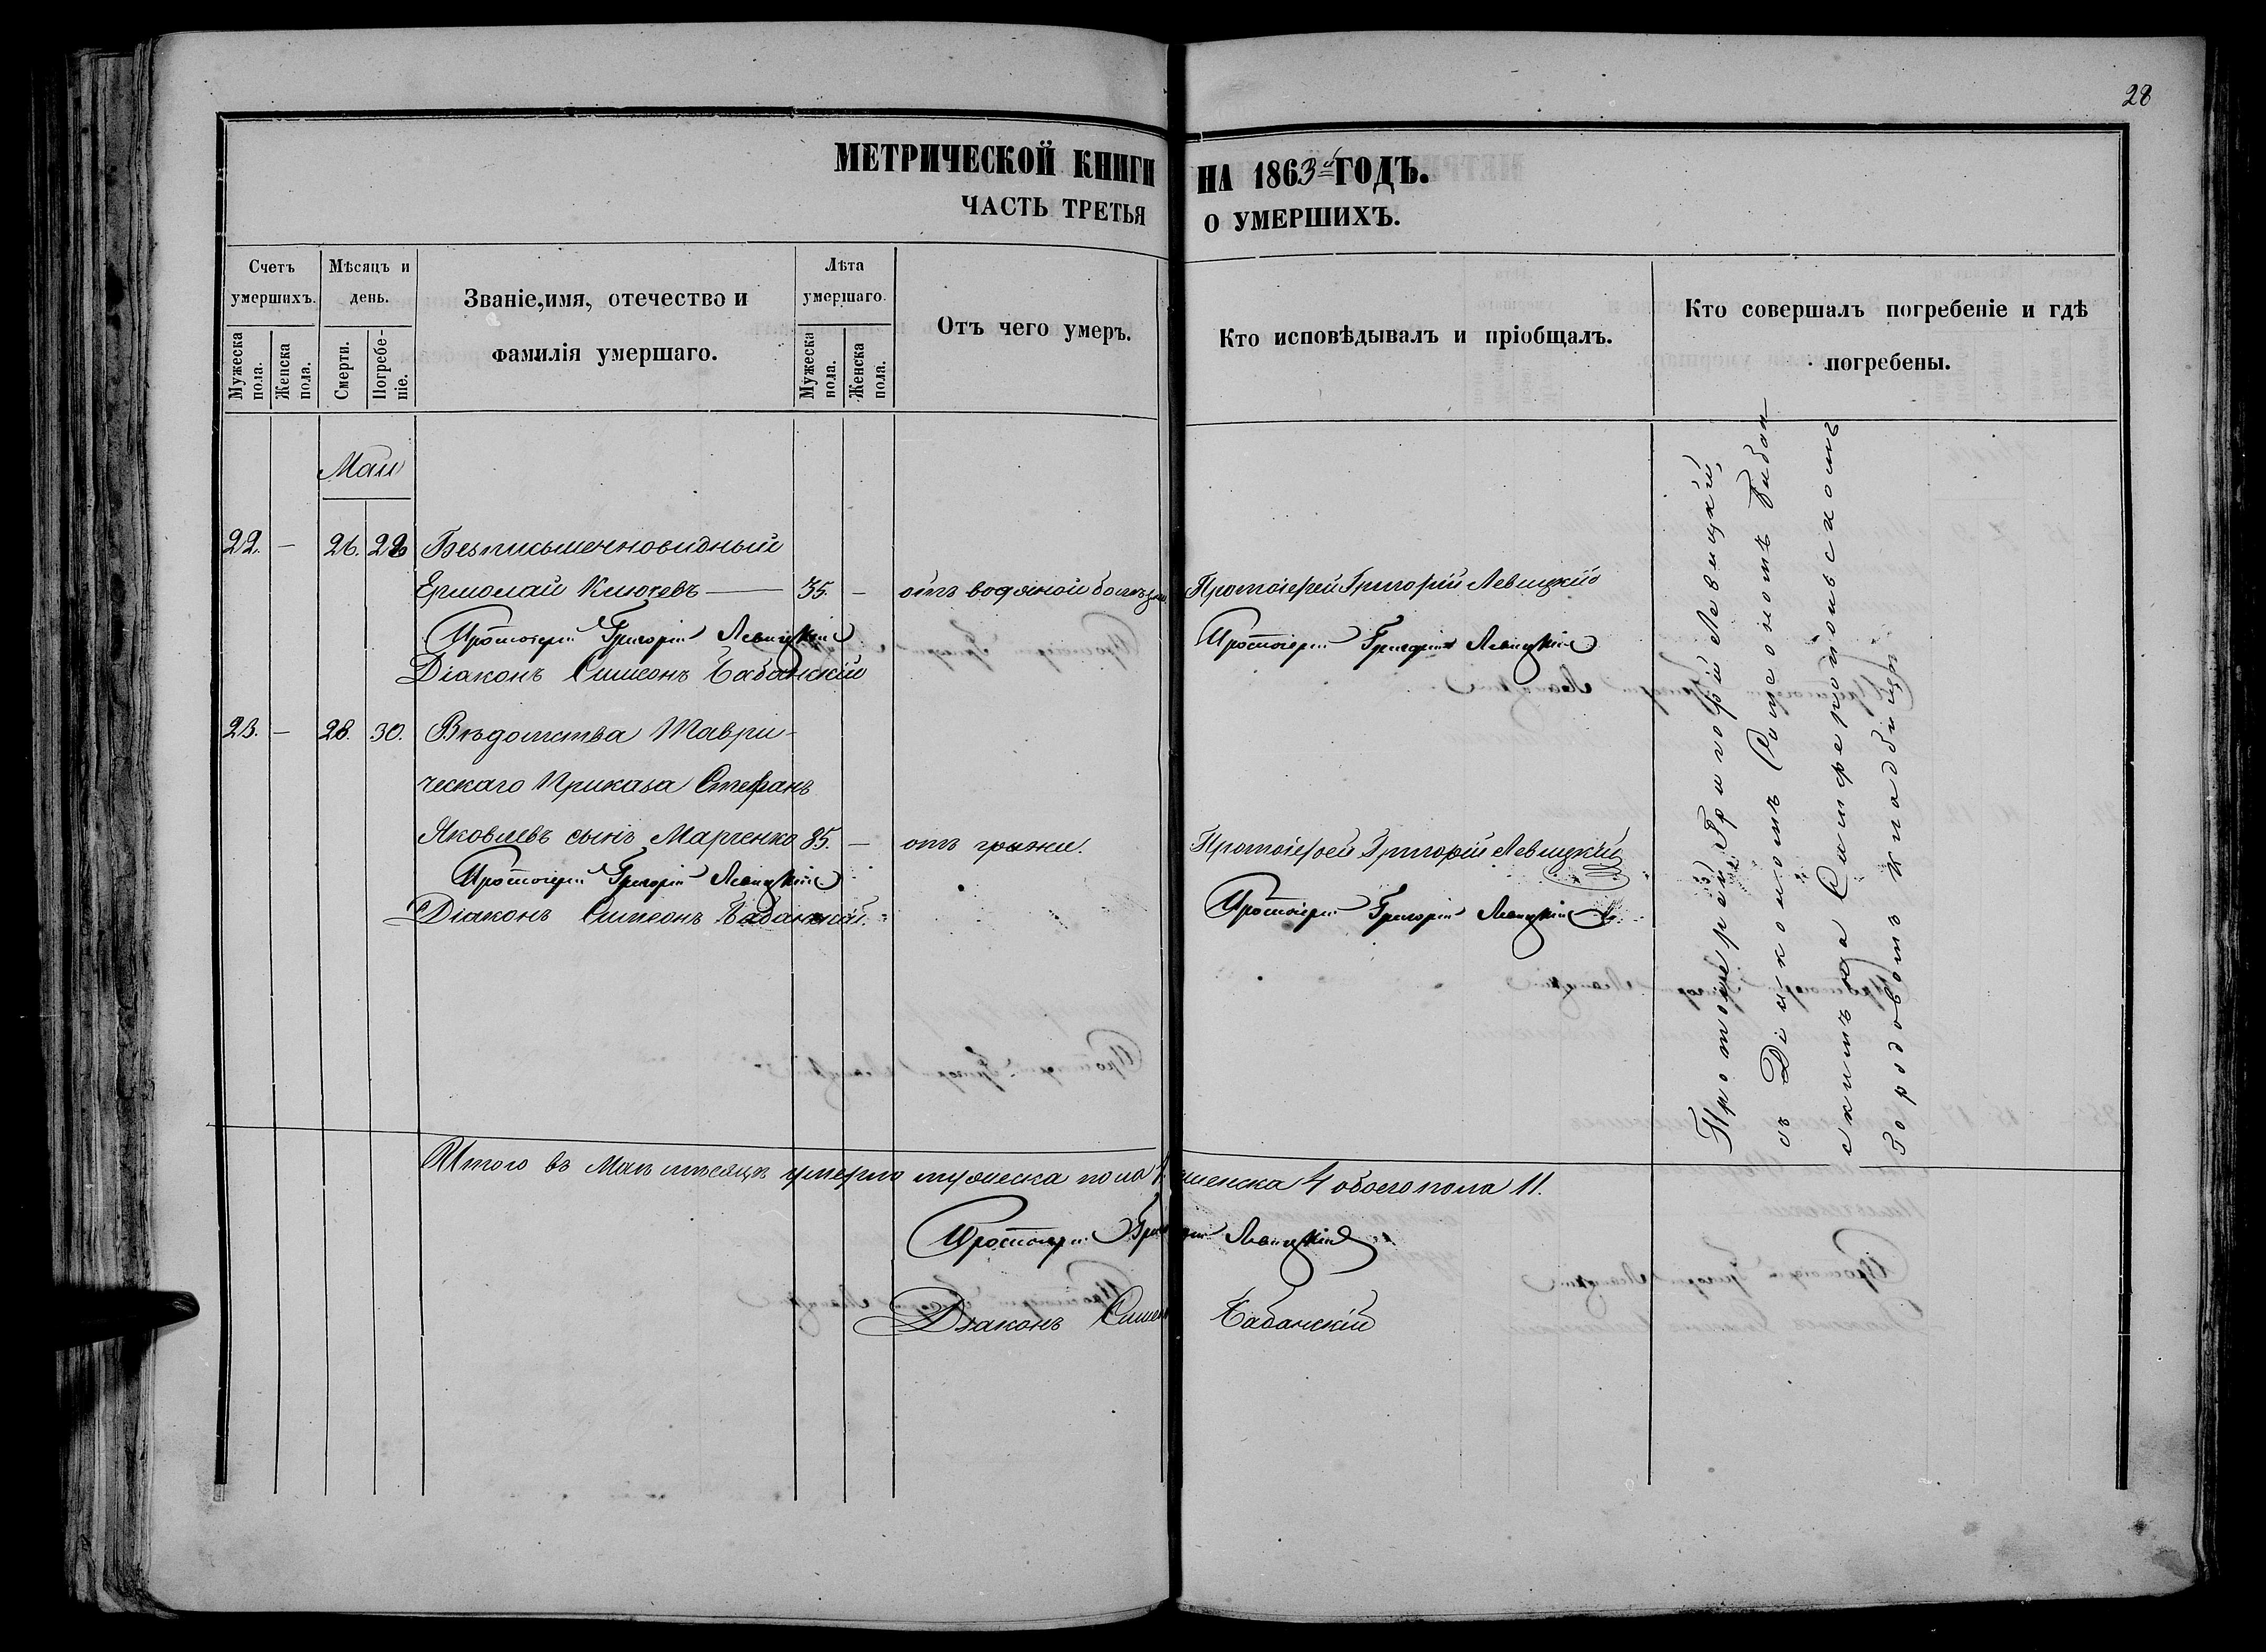 28
МЕТРИЧЕСКОЙ КНИГИ НА 1863й ГОДЪ.
ЧАСТЬ ТРЕТЬЯ О УМЕРШИХЪ.
Счетъ умершихъ.
Мужеска пола.
Женска пола.
Мѣсяцъ и день.
Смерти.
Погребе-
ніе.
Званіе, имя, отечество и
фамилія умершаго.
Лѣта умершаго.
Мужеска пола.
Женска пола.
Отъ чего умеръ.
Кто исповѣдывалъ и пріобщалъ.
Кто совершалъ погребеніе и гдѣ
погребены.
Маи
22. — 26. 28 Безписьменновидный
Ермолай Клюевъ — 35. — отъ водяной болѣзни Протоіерей Григорій Левицкій
Протоіерей Григорій Левицкій Протоіерей Григорій Левицкій
Діаконъ Симеонъ Бабанскій
23. — 28. 30. Вѣдомства Таври-
ческаго Приказа Стефанъ
Яковлевъ сынъ Марченко 85. — отъ грыжи. Протоіерей Григорій Левицкій
Протоіерей Григорій Левицкій Протоіерей Григорій Левицкій
Діаконъ Симеонъ Бабанскій.
Протоіерей Григорій Левицкій
съ Діакономъ Симеономъ Бабан-
скимъ на Симферопольскомъ
городовомъ кладбищѣ
Итого въ Маѣ мѣсяцѣ умерло мужеска пола 7. женска 4 обоего пола 11.
Протоіерей Григорій Левицкій
Діаконъ Симеонъ Бабанскій